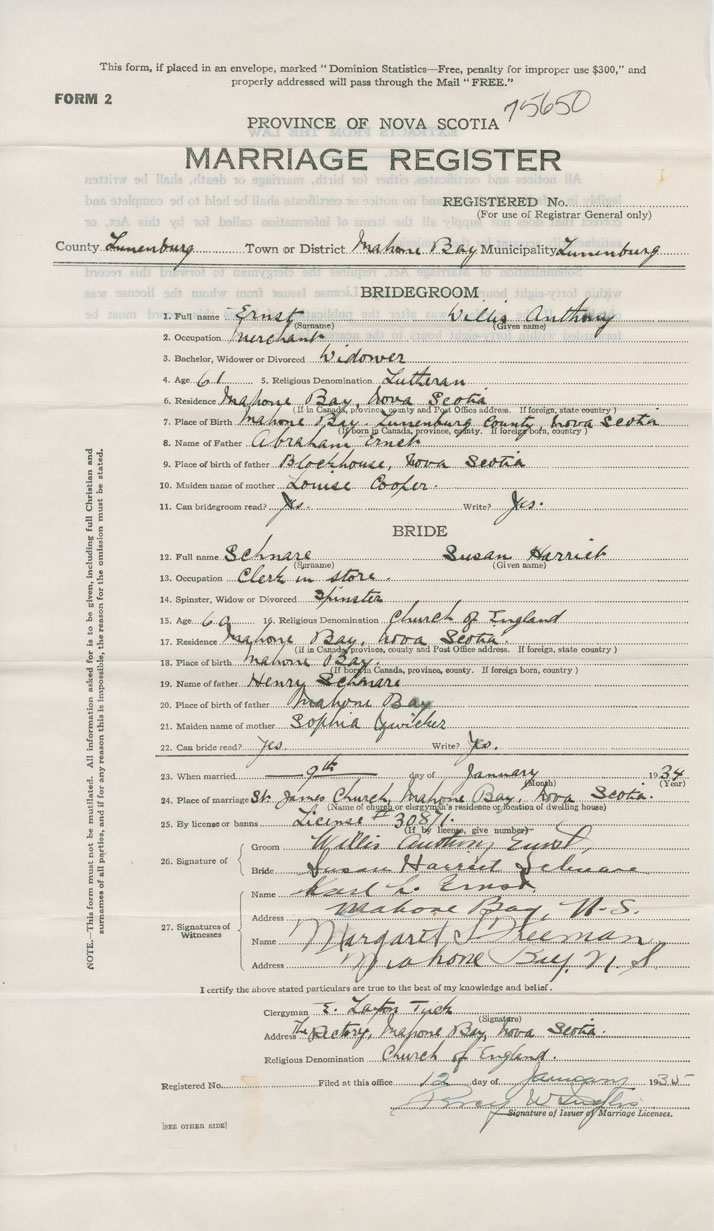 This form, if placed in an envelope, marked "Dominion Statistics—Free, penalty for improper use $300," and
properly addressed will pass through the Mail "FREE."
FORM 2
75650
PROVINCE OF NOVA SCOTIA
MARRIAGE REGISTER
REGISTERED No.
(For use of Registrar General only)
County Lunenburg Town or District Mahone Bay Municipality Lunenburg
BRIDEGROOM
1. Full name Ernst Willis Anthony
(Surname) (Given name)
2. Occupation Merchant
3. Bachelor, Widower or Divorced Widower
4. Age 61 5. Religious Denomination Lutheran
6. Residence Mahone Bay, Nova Scotia
(If in Canada, province, county and Post Office address. If foreign, state country)
7. Place of Birth Mahone Bay Lunenburg County, Nova Scotia
(If born in Canada, province, county. If foreign born, country)
8. Name of Father Abraham Ernst
9. Place of birth of father Blockhouse, Nova Scotia
10. Maiden name of mother Louise Cooper.
11. Can bridegroom read? Yes. Write? Yes.
BRIDE
12. Full name Schnare Susan Harriet
(Surname) (Given name)
13. Occupation Clerk in store.
14. Spinster, Widow or Divorced Spinster
15. Age 60 16. Religious Denomination Church of England
17. Residence Mahone Bay, Nova Scotia.
(if in Canada, province, county and Post Office address. If foreign, state country)
18. Place of birth Mahone Bay.
(If born in Canada, province, county. If foreign born, country)
19. Name of father Henry Schnare
20. Place of birth of father Mahone Bay
21. Maiden name of mother Sophia
22. Can bride read? Yes Write? Yes.
23. When married 9th day of January 1934
(Month) (Year)
24. Place of marriage St. James Church, Mahone Bay, Nova Scotia.
(Name of church or clergyman's residence or location of dwelling house)
25. By license or banns License # 30871.
(If by license, give number)
26. Signature of
Groom Willis Anthony Ernst,
Bride Susan Harriet Schnare
27. Signatures of Witnesses
Name Karl L. Ernst
Address Mahone Bay, N.S.
Name Margaret S Freeman
Address Mahone Bay, N S
I certify the above stated particulars are true to the best of my knowledge and belief.
Clergyman E. Laxton
(Signature)
Address The Rectory, Mahone Bay, Nova Scotia.
Religious Denomination Church of England.
Registered No. Filed at this office 12 day of January 1935
Signature of Issuer of Marriage Licenses.
[SEE OTHER SIDE]
NOTE.—This form must not be mutilated. All information asked for is to be given, including full Christian and
surnames of all parties, and if for any reason this is impossible, the reason for the omission must be stated.